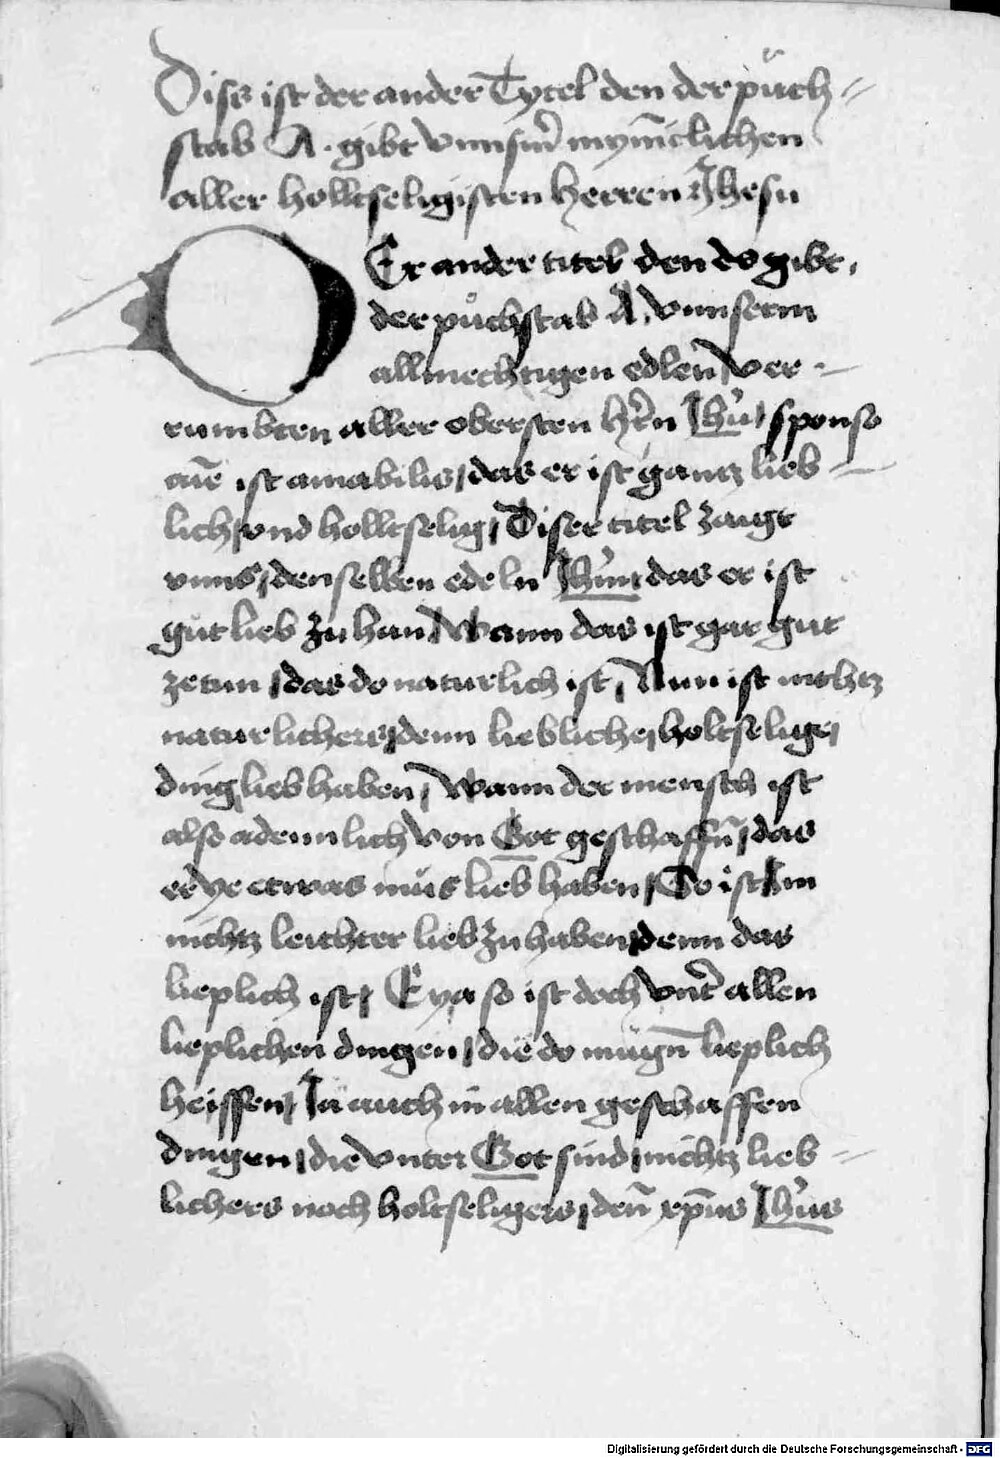 Diss ist der ander Tytel den der půch-
stab A. gibt vnnserm mynniclichen
aller holltseligisten herren Jhesu
DEr ander titel den do gibt,
der půchstab A, vnnserm
allmechtigen edlen ver-
rumbten aller obersten hr̄n Jhu̓ sponso
aūe ist amabilis / das er ist gantz lieb-
lich / vnd holltselig / Diser titel zaigt
vnns / denselben edeln Jhu̓m das er ist
gůt lieb zu han / Wann das ist gar gut
ze tun / das do naturlich ist / Nun ist nichtz
naturlichers / denn liebliche / holtselige /
ding lieb haben / Wann der mensch ist
also adennlich von Got geschaffn̄ / das
er ye etwas můs lieb haben / So ist Im
nichtz leichter lieb zu haben / denn das
lieplich ist / Eya so ist doch vnt̓ allen
lieplichen dingen / die do mügn̄ lieplich
heissen / Ja auch in allen geschaffen
dingen / die vnter Got sind / nichtz lieb-
lichers noch holtseligers / den̄ xp̄us Jhu̓s
Digitalisierung gefördert durch die Deutsche Forschungsgemeinschaft - DFG